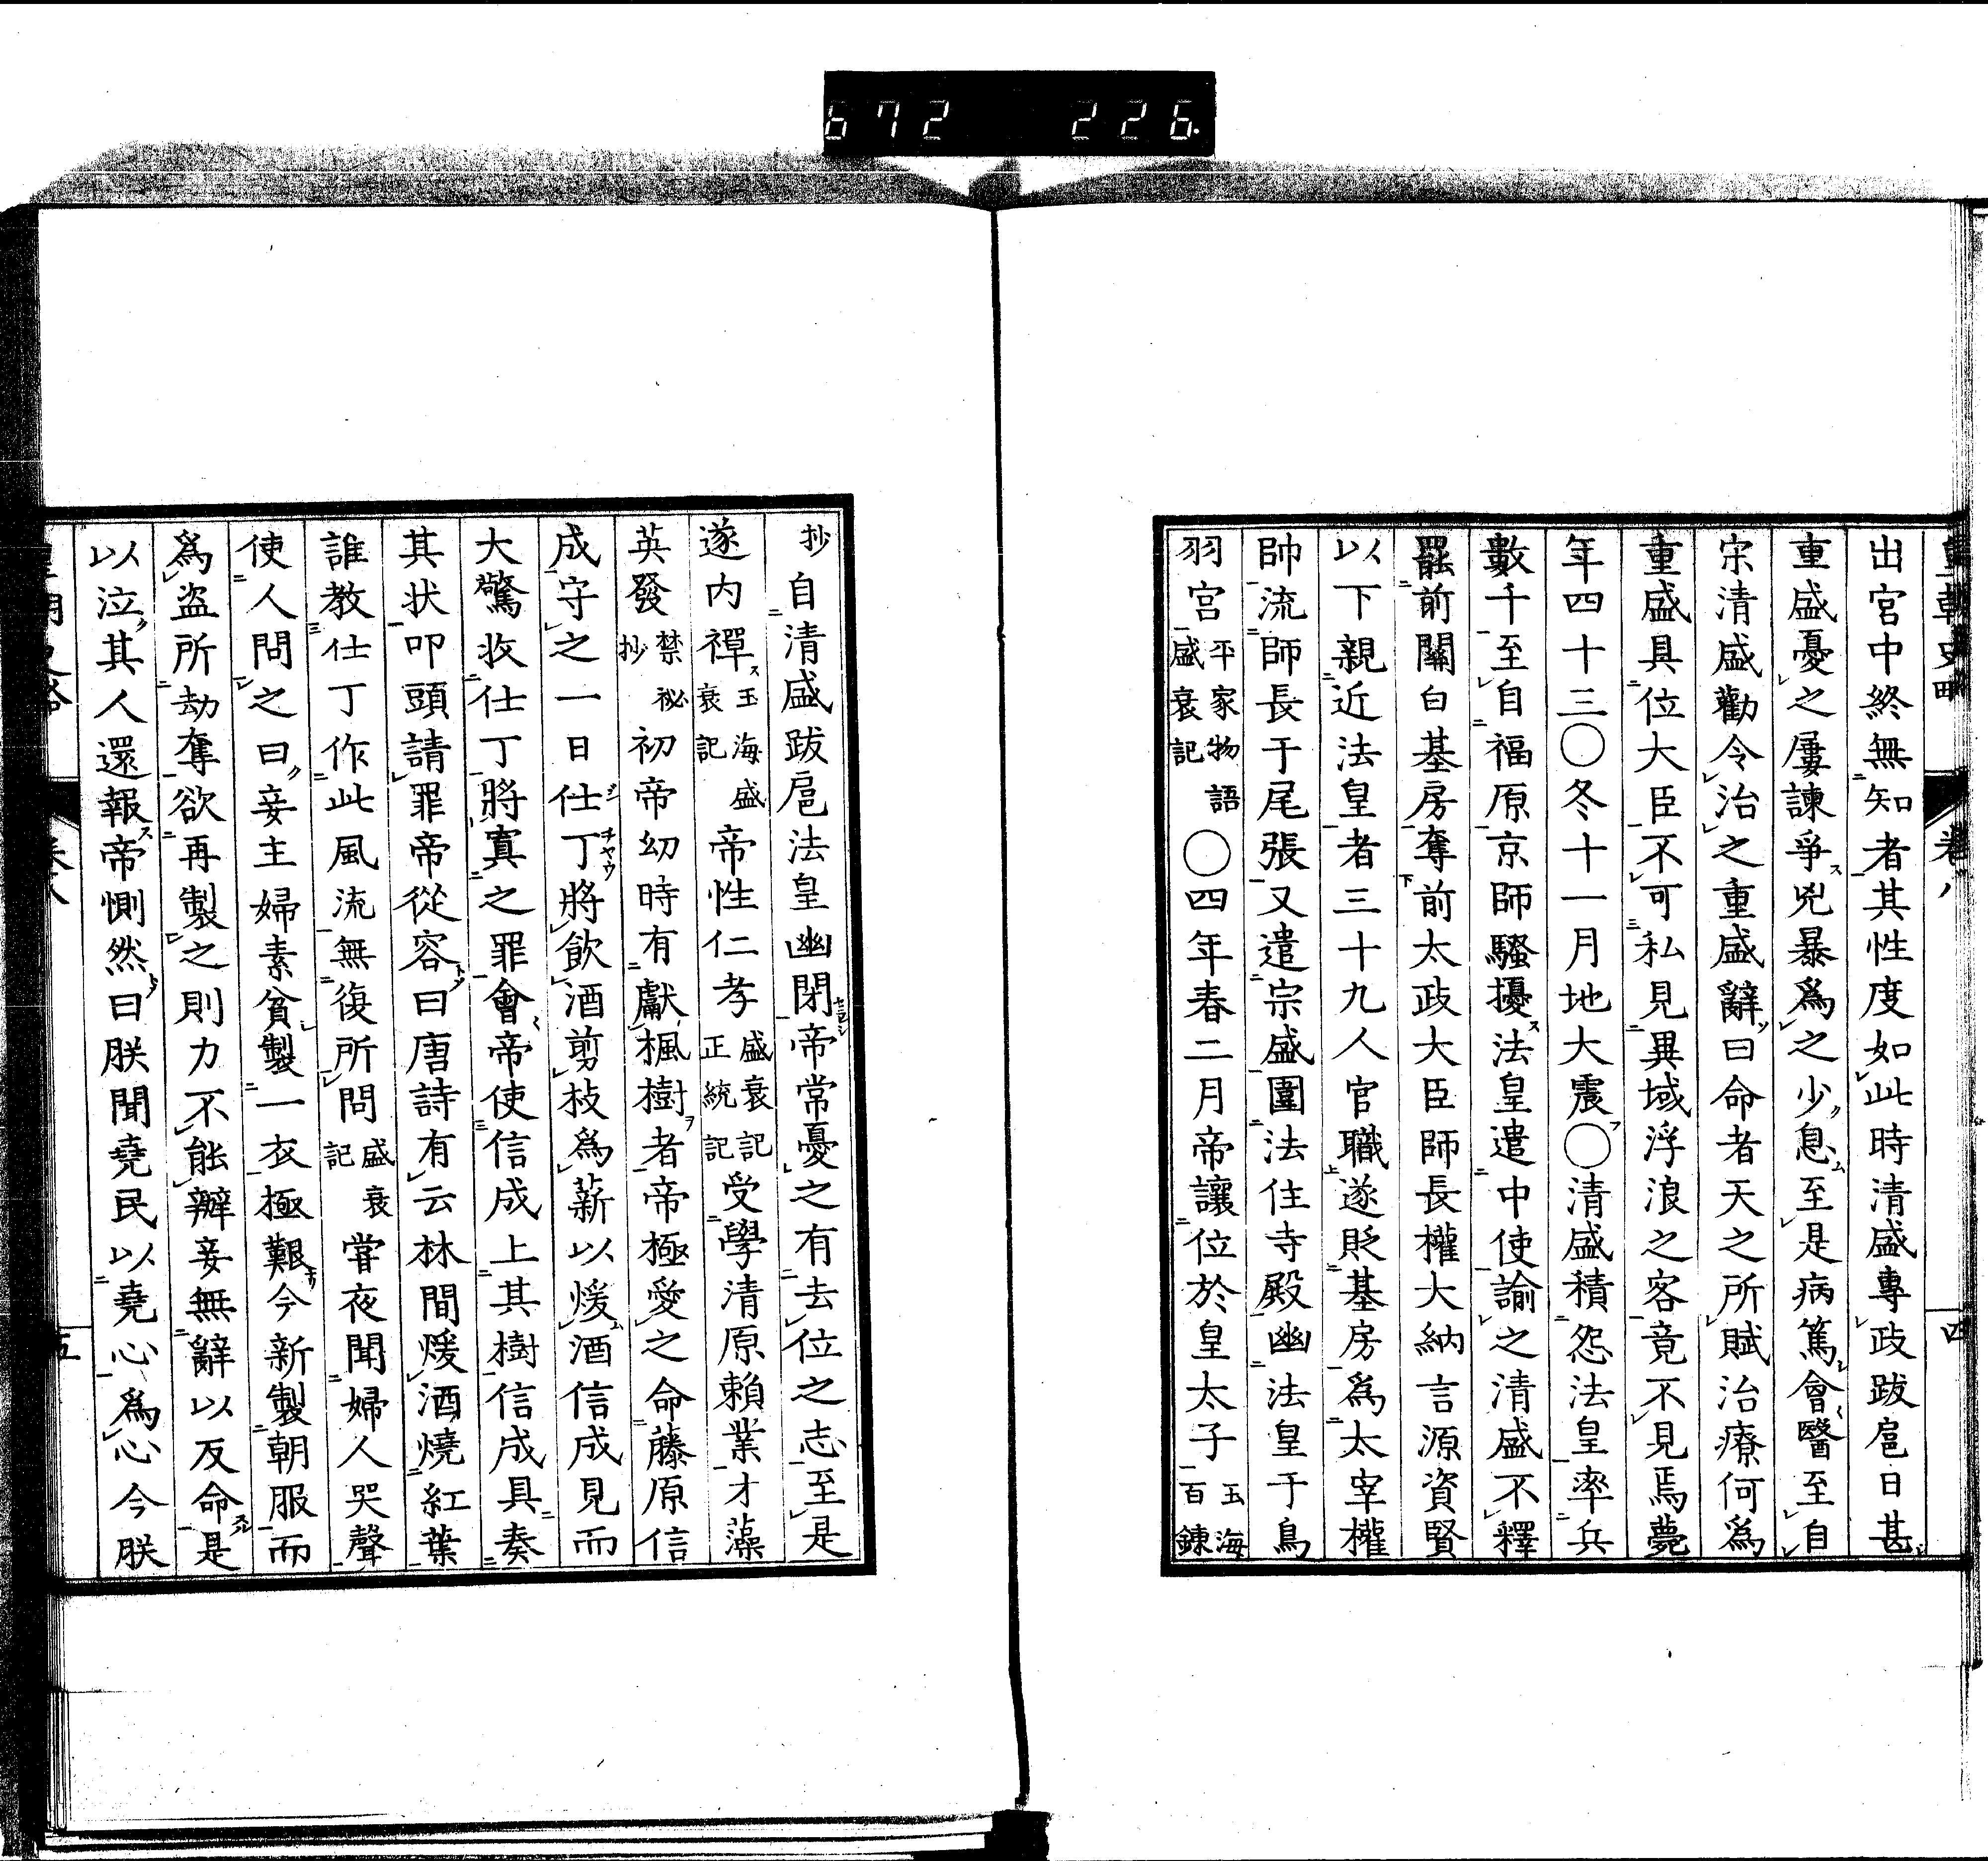 672 226
皇朝史略 卷八 四
出宮中終無知者其性度如此時清盛專政跋扈日甚
重盛憂之屢諫爭兇暴爲之少息至是病篤會醫至自
宋清盛勸令治之重盛辭曰命者天之所賦治療何爲
重盛具位大臣不可私見異域浮浪之客竟不見焉薨
年四十三〇冬十一月地大震〇清盛積怨法皇率兵
數千至自福原京師騷擾法皇遣中使諭之清盛不釋
罷前關白基房奪前太政大臣師長權大納言源資賢
以下親近法皇者三十九人官職遂貶基房爲太宰權
帥流師長于尾張又遣宗盛圍法住寺殿幽法皇于鳥
羽宮平家物語盛衰記〇四年春二月帝讓位於皇太子玉海百鍊
抄自清盛跋扈法皇幽閉帝常憂之有去位之志至是
遂內禪玉海盛衰記帝性仁孝盛衰記正統記受學清原賴業才藻
英發禁秘抄初帝幼時有獻楓樹者帝極愛之命藤原信
成守之一日仕丁將飲酒剪枝爲薪以煖酒信成見而
大驚收仕丁將寘之罪會帝使信成上其樹信成具奏
其狀叩頭請罪帝從容曰唐詩有云林間煖酒燒紅葉
誰教仕丁作此風流無復所問盛衰記嘗夜聞婦人哭聲
使人問之曰妾主婦素貧製一衣極艱今新製朝服而
爲盜所劫奪欲再製之則力不能辦妾無辭以反命是
以泣其人還報帝惻然曰朕聞堯民以堯心爲心今朕
五